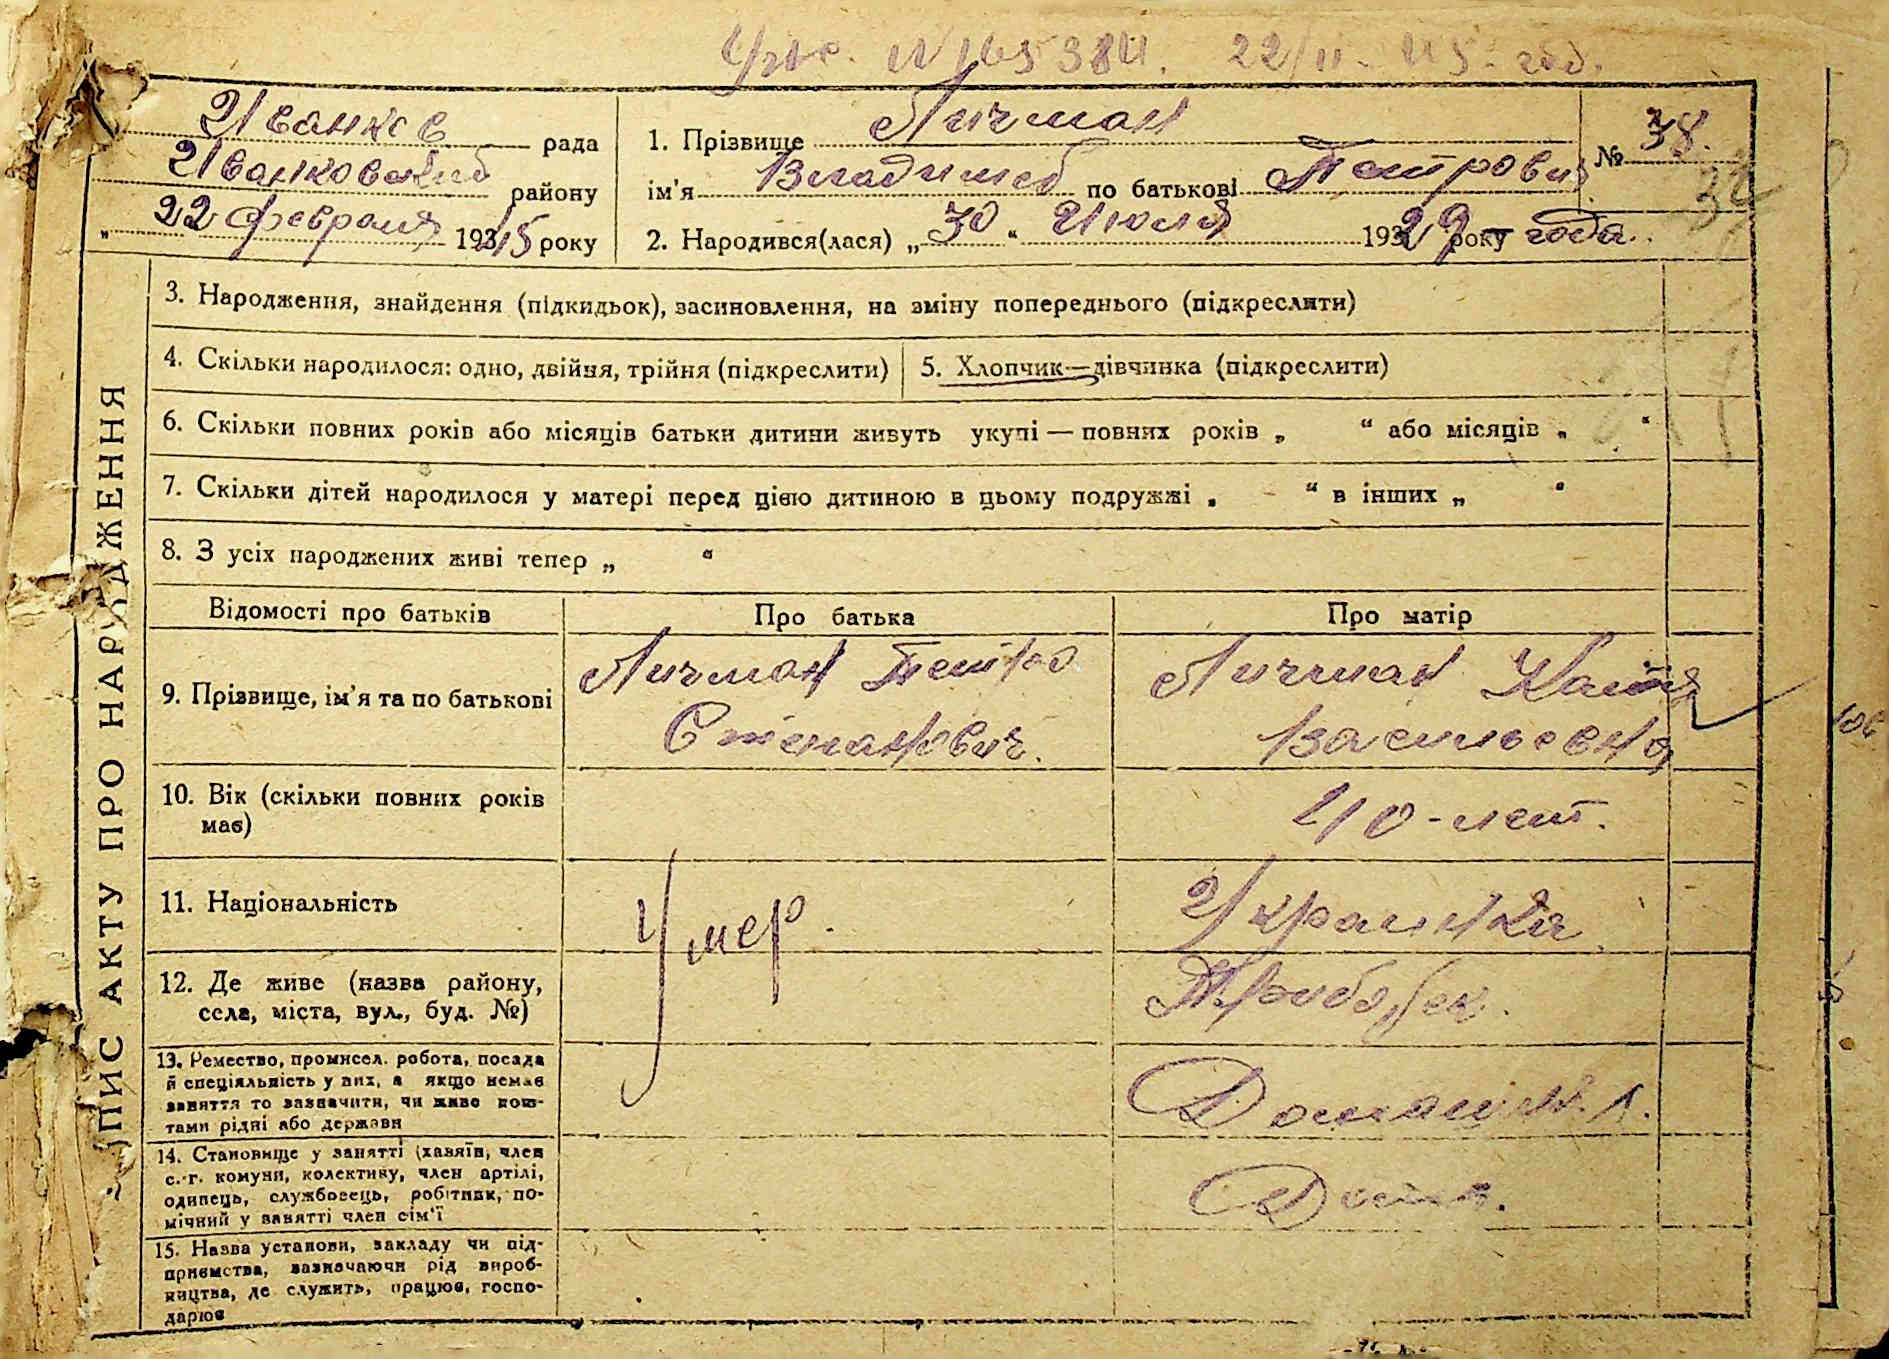 N 165384. 22/II - 45 - год.
Иванков рада
Иванковский району
„ 22 февраля 1945 року
1. Прізвище Личман
№ 38.
ім'я Владимеб по батькові Петрович
2. Народився(лася) „ 30 “ Июля 1929 року года.
3. Народження, знайдення (підкидьок), засиновлення, на зміну попереднього (підкреслити)
4. Скільки народилося: одно, двійня, трійня (підкреслити)
5. Хлопчик—дівчинка (підкреслити)
6. Скільки повних років або місяців батьки дитини живуть укупі — повних років „ “ або місяців „ “
7. Скільки дітей народилося у матері перед цією дитиною в цьому подружжі „ “ в інших „ “
8. З усіх народжених живі тепер „ “
Відомості про батьків
Про батька
Про матір
9. Прізвище, ім'я та по батькові
Личман Петро
Степанович.
Личман Катя
Васильевна
10. Вік (скільки повних років
має)
40-лет.
11. Національність
Умер.
Украинка.
12. Де живе (назва району,
села, міста, вул., буд. №)
13. Ремество, промисел. робота, посада
й спеціяльність у них, а якщо немає
заняття то зазначити, чи живе кош-
тами рідні або держави
Домашн.
14. Становище у занятті (хазяїн, член
с.-г. комуни, колективу, член артілі,
одинець, службовець, робітник, по-
мічний у занятті член сім'ї
15. Назва установи, закладу чи під-
приємства, зазначаючи рід вироб-
ництва, де служить, працює, госпо-
дарює
ПИС АКТУ ПРО НАРОДЖЕННЯ